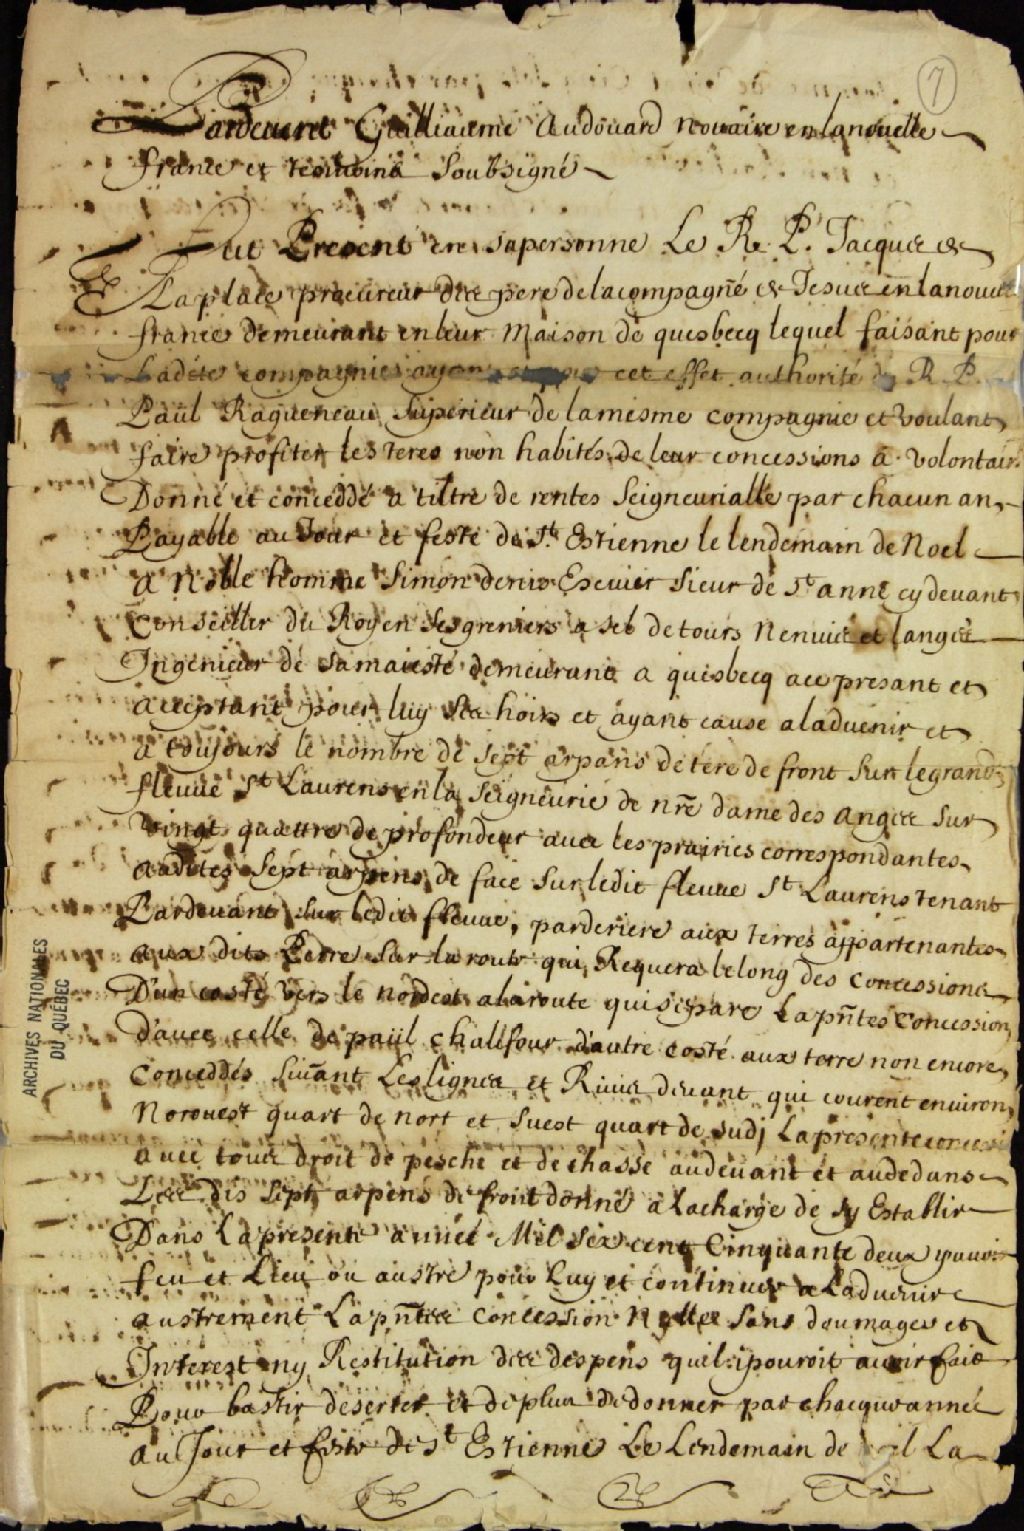 7
Pardevant Guillaume Audouard notaire en lanouelle
france et temoins soubsigné
fut Present en sapersonne Le R. P. Jacques de
Laplace procureur des pere delacompagñe de Jesus en lanouvelle
france demeurant enleur Maison de quesbecq lequel faisant pour
Ladite compagnie ayant cet effet authorité du R. P.
Paül Ragueneau Superieur de lamesme compagnie et voulant
faire profiter les teres non habités de leur concessions a volontair
Donné et conceddé a tiltre de rentes Seigneurialle par chacun an
Payable au Jour et feste de St. Estienne le lendemain de Noel
a Noble homme Simon denis Escuier Sieur de St anne cy devant
Conseiller du Roy en Ses greniers a sel de tours
Ingenieur de samaiesté demeurant a quesbecq ace presant et
acceptant pour luy Ses hoirs et ayant cause aladuenir et
a toujours le nombre de sept arpans de tere de front sur legrand
fleuue St Laurens enla Seigneurie de nr̃e dame des anges Sur
vingt quattre de profondeur auec les prairies correspondantes
ausdites Sept arpens de face Surledit fleuue St Laurens tenant
Pardevant sur ledit fleuue, parderiere aux terres appartenantes
aux dits Peres Sur la route qui Requera lelong des concessions
D'un costé vers le nordest alaroute qui separe Lapñtes Concession
d'auec celle de paül challfour d'autre costé aux terre non encore
Conceddés suiuant Leslignes et Rums devant qui courent enuiron
Norouest quart de nort et Suest quart de sudj Lapresente concessi
auec tous droit de pesche et de chasse audeuant et audedans
Des dis Sept arpens de front donné a lacharge de sy Establir
Dans Lapresente année Mil Six cent Cinquante deux y auoir
feu et Lieu ou austre pour Luy et continuer a Laduenir
austrement Lapñtes Concession Nulle Sans doumages et
Interest ny Restitution des despens quil ipouroit auoir fait
Pour bastir deserter et deplus de donner par chacque année
au Jour et feste de St Estienne Le Lendemain de Noel La
ARCHIVES NATIONALES
DU QUÉBEC